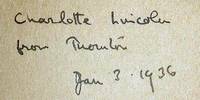 Charlotte Lincoln
from Thornton
Jan 3 · 1936